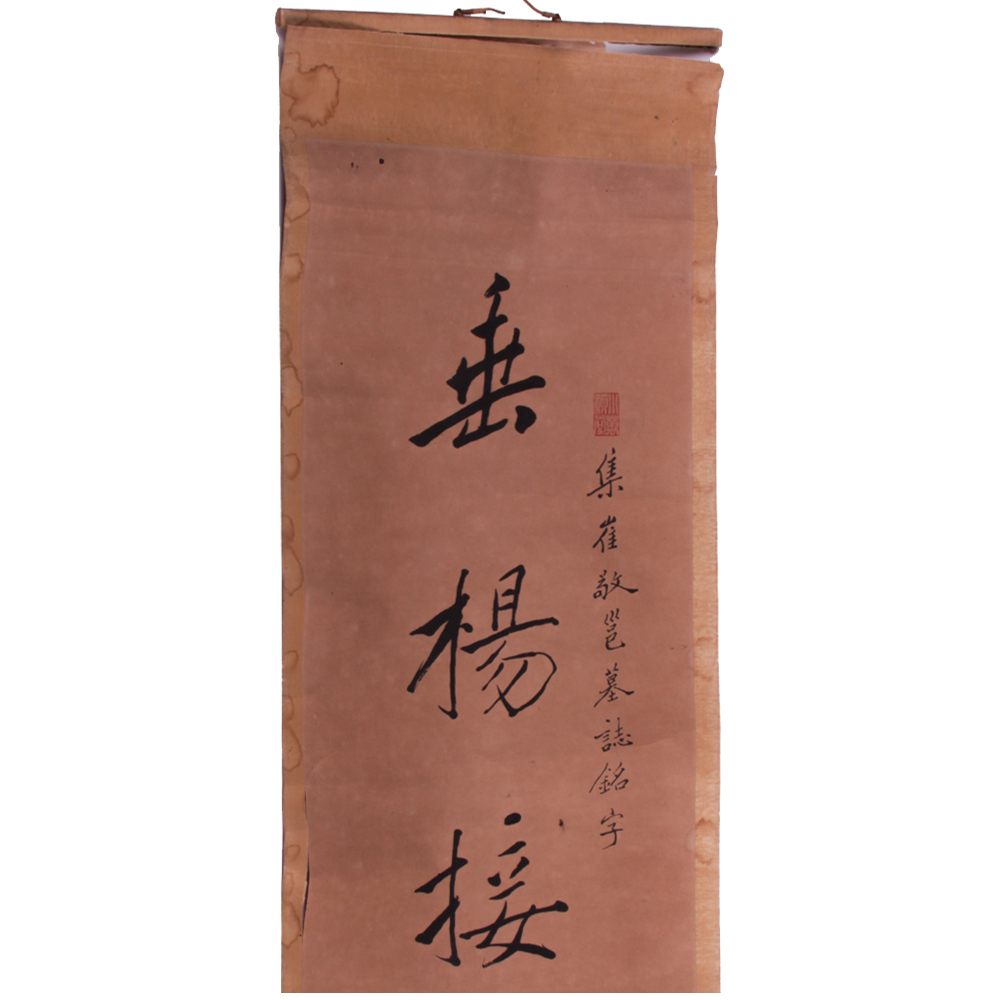 集崔敬邕墓誌銘字
垂楊接